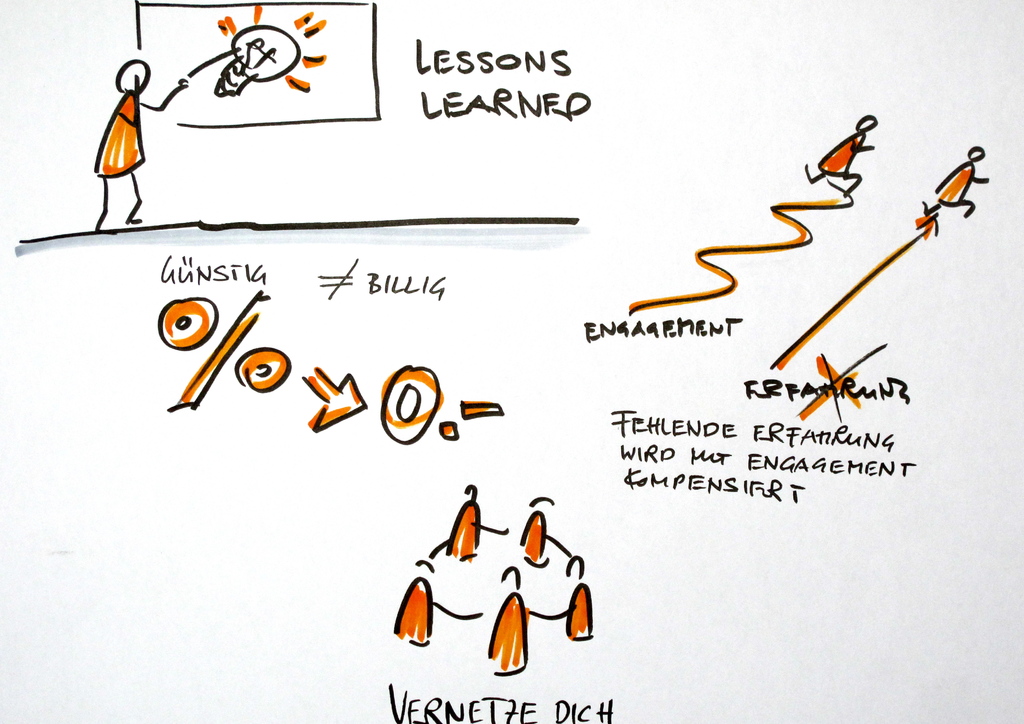 LESSONS
LEARNED
GÜNSTIG ≠ BILLIG
%
0.-
ENGAGEMENT
ERFAHRUNG
FEHLENDE ERFAHRUNG
WIRD MIT ENGAGEMENT
KOMPENSIERT
VERNETZE DICH